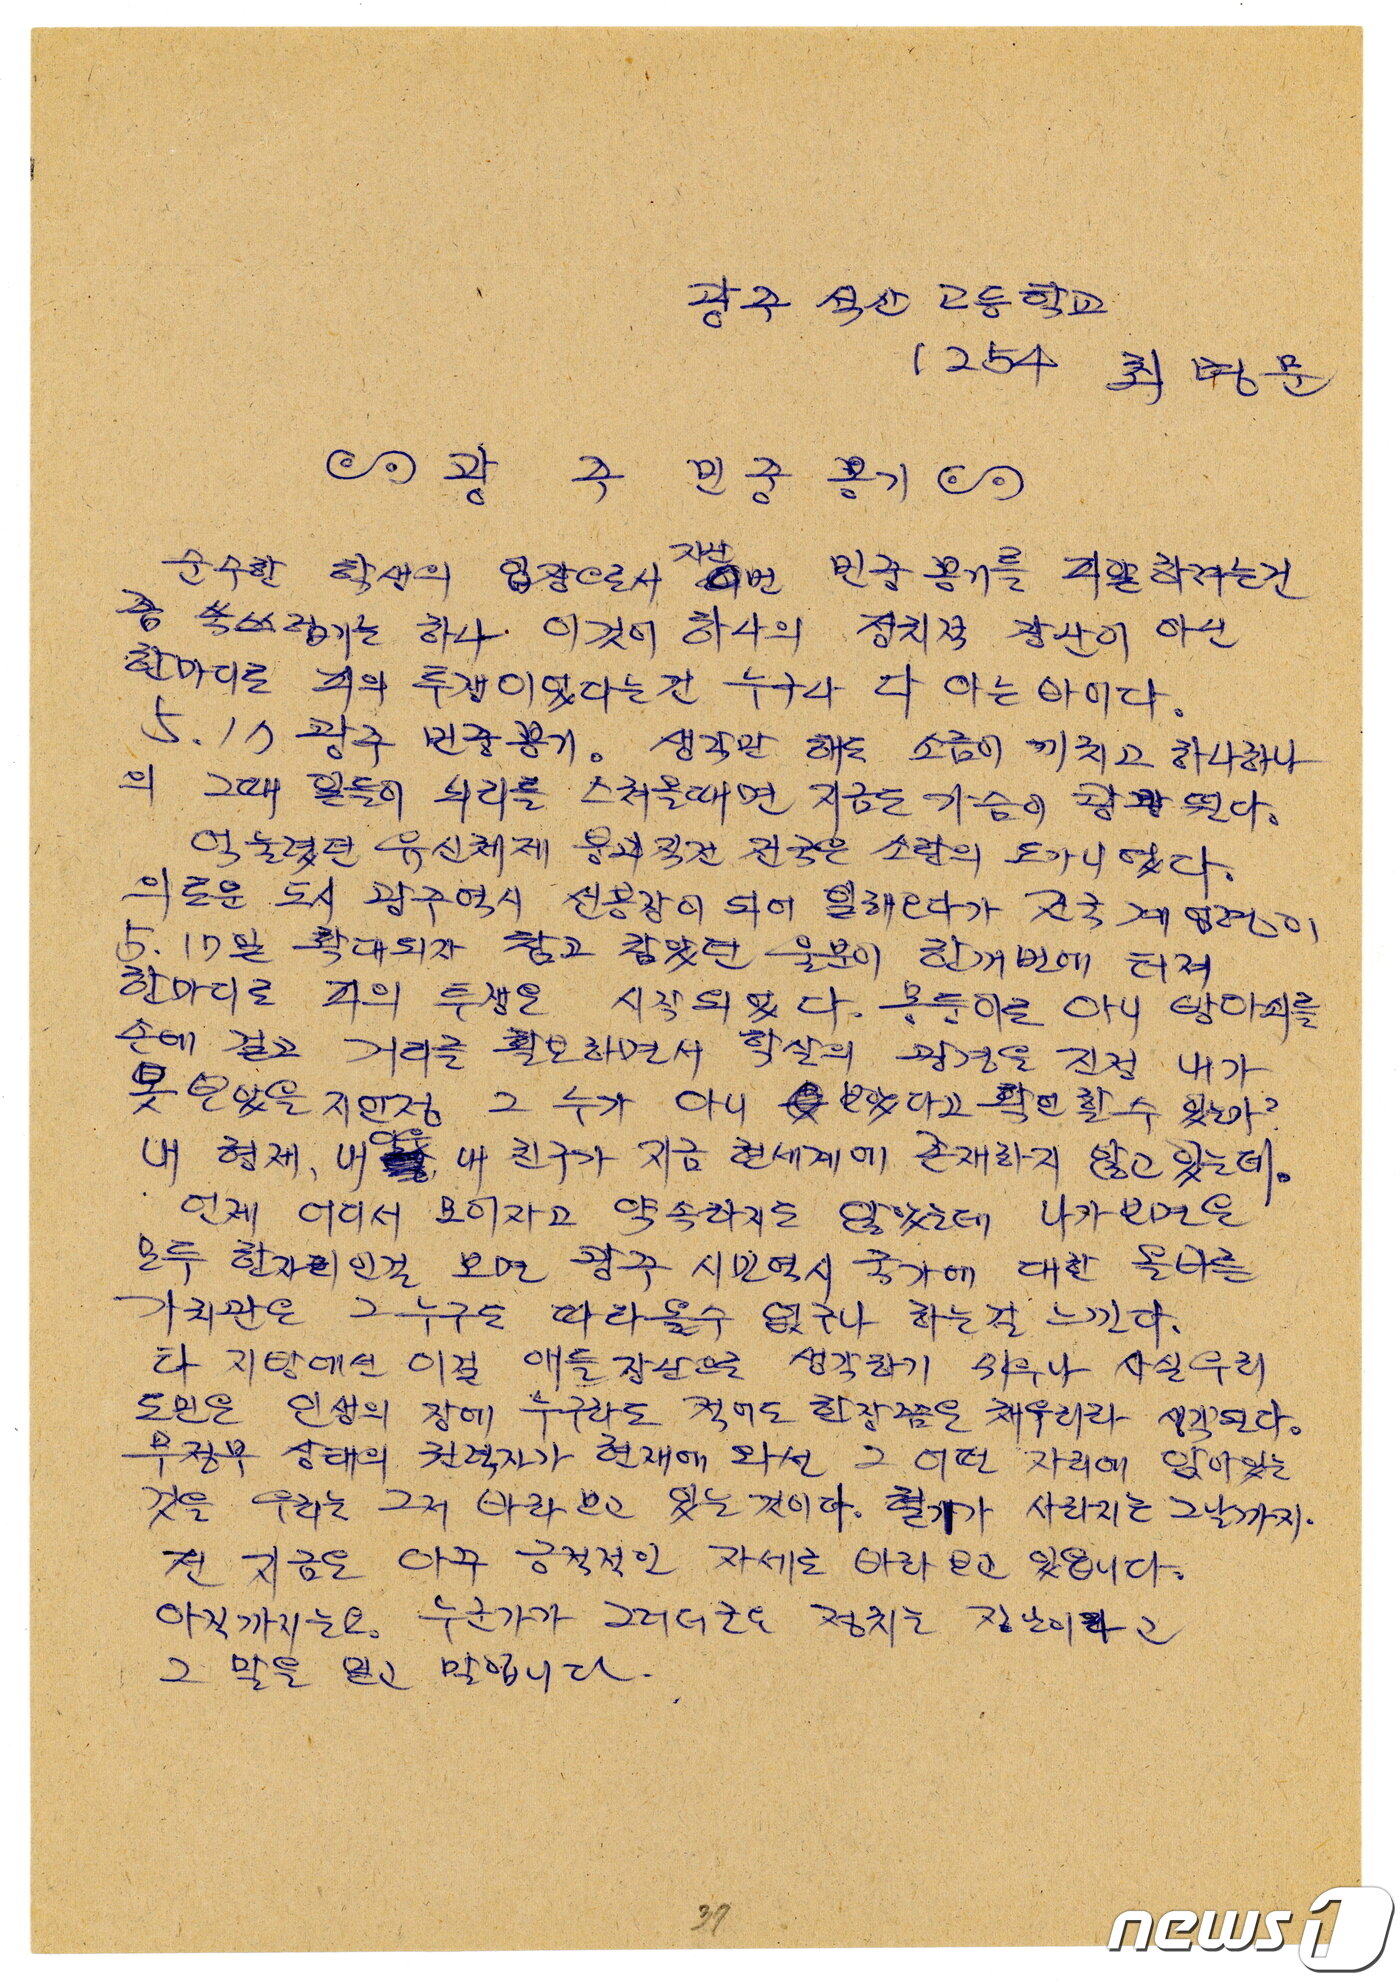 광주 석산 고등학교
1254 최병문
광 주 민중 봉기
순수한 학생의 입장으로서 지난 번 민중 봉기를 피암하려는건
좀 쑥쓰럽기는 하나 이것이 하나의 정치적 장난이 아닌
한마디로 피의 투쟁이었다는건 누구나 다 아는 바이다.
5.17 광주 민중봉기. 생각만 해도 소름이 끼치고 하나하나
의 그때 일들이 뇌리를 스쳐올때면 지금도 가슴이 쾅쾅 된다.
억눌렸던 유신체제 붕괴직전 전국은 소란의 도가니였다.
의로운 도시 광주역시 선봉장이 되어 일해오다가 전국 계엄령이
5.17일 확대되자 참고 참았던 울분이 한꺼번에 터져
한마디로 피의 투쟁은 시작되었다. 몽둥이를 아니 방아쇠를
손에 걸고 거리를 활보하면서 학살의 광경을 진정 내가
못 보았을지언정 그 누가 아니 보았다고 확언할수 있는가?
내 형제, 내 이웃, 내 친구가 지금 현세계에 존재하지 않고 있는데.
언제 어디서 모이자고 약속하지도 않았는데 나가보면은
모두 한자리인걸 보면 광주 시민역시 국가에 대한 올바른
가치관은 그누구도 따라올수 없구나 하는걸 느낀다.
타 지방에선 이걸 애들 장난으로 생각하기 쉬우나 사실우리
도민은 인생의 장에 누구라도 적어도 한장쯤은 채우리라 생각된다.
무정부 상태의 권력자가 현재에 와선 그 어떤 자리에 앉아있는
것을 우리는 그저 바라보고 있는것이다. 혈기가 사라지는 그날까지.
전 지금은 아주 긍적적인 자세로 바라보고 있읍니다.
아직까지는요. 누군가가 그러더군요 정치는 장난이라고
그 말을 믿고 말입니다.
37
news1